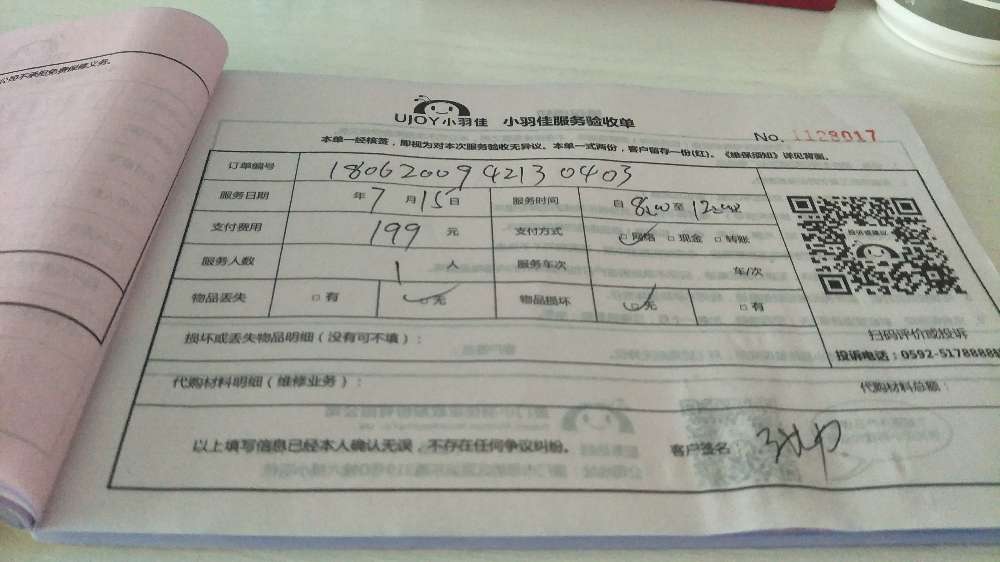 公司不承担免费保修义务。
UJOY小羽佳 小羽佳服务验收单
No. 1128017
本单一经核签，即视为对本次服务验收无异议。本单一式两份，客户留存一份(红)。《维保须知》详见背面。
订单编号 180620094213 0403
服务日期 年7月15日 服务时间 自8:00至12:00
支付费用 199 元 支付方式 □网络 □现金 □转账
服务人数 1 人 服务车次 车/次
物品丢失 □有 □无 物品损坏 □无 □有
投诉或建议
扫码评价或投诉
投诉电话：0592-5178888
损坏或丢失物品明细（没有可不填）：
代购材料明细（维修业务）： 代购材料总额：
以上填写信息已经本人确认无误，不存在任何争议纠纷。 客户签名：